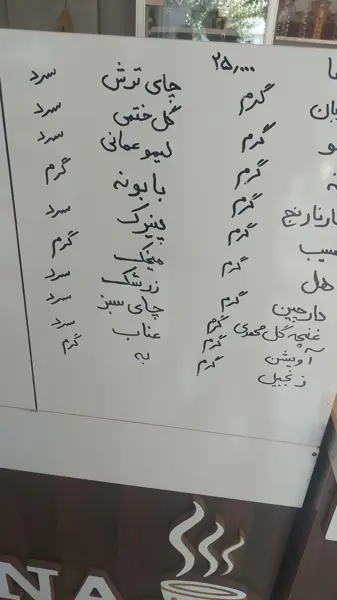 ۲۵,۰۰۰
گرم چای ترش سرد
گرم گل ختمی سرد
گرم لیمو عمانی سرد
نارنج گرم بابونه گرم
سیب گرم پنیرک سرد
هل گرم میخک گرم
دارچین گرم زرشک سرد
غنچه گل محمدی گرم چای سبز سرد
آویشن گرم عناب سرد
زنجبیل گرم به گرم
NA